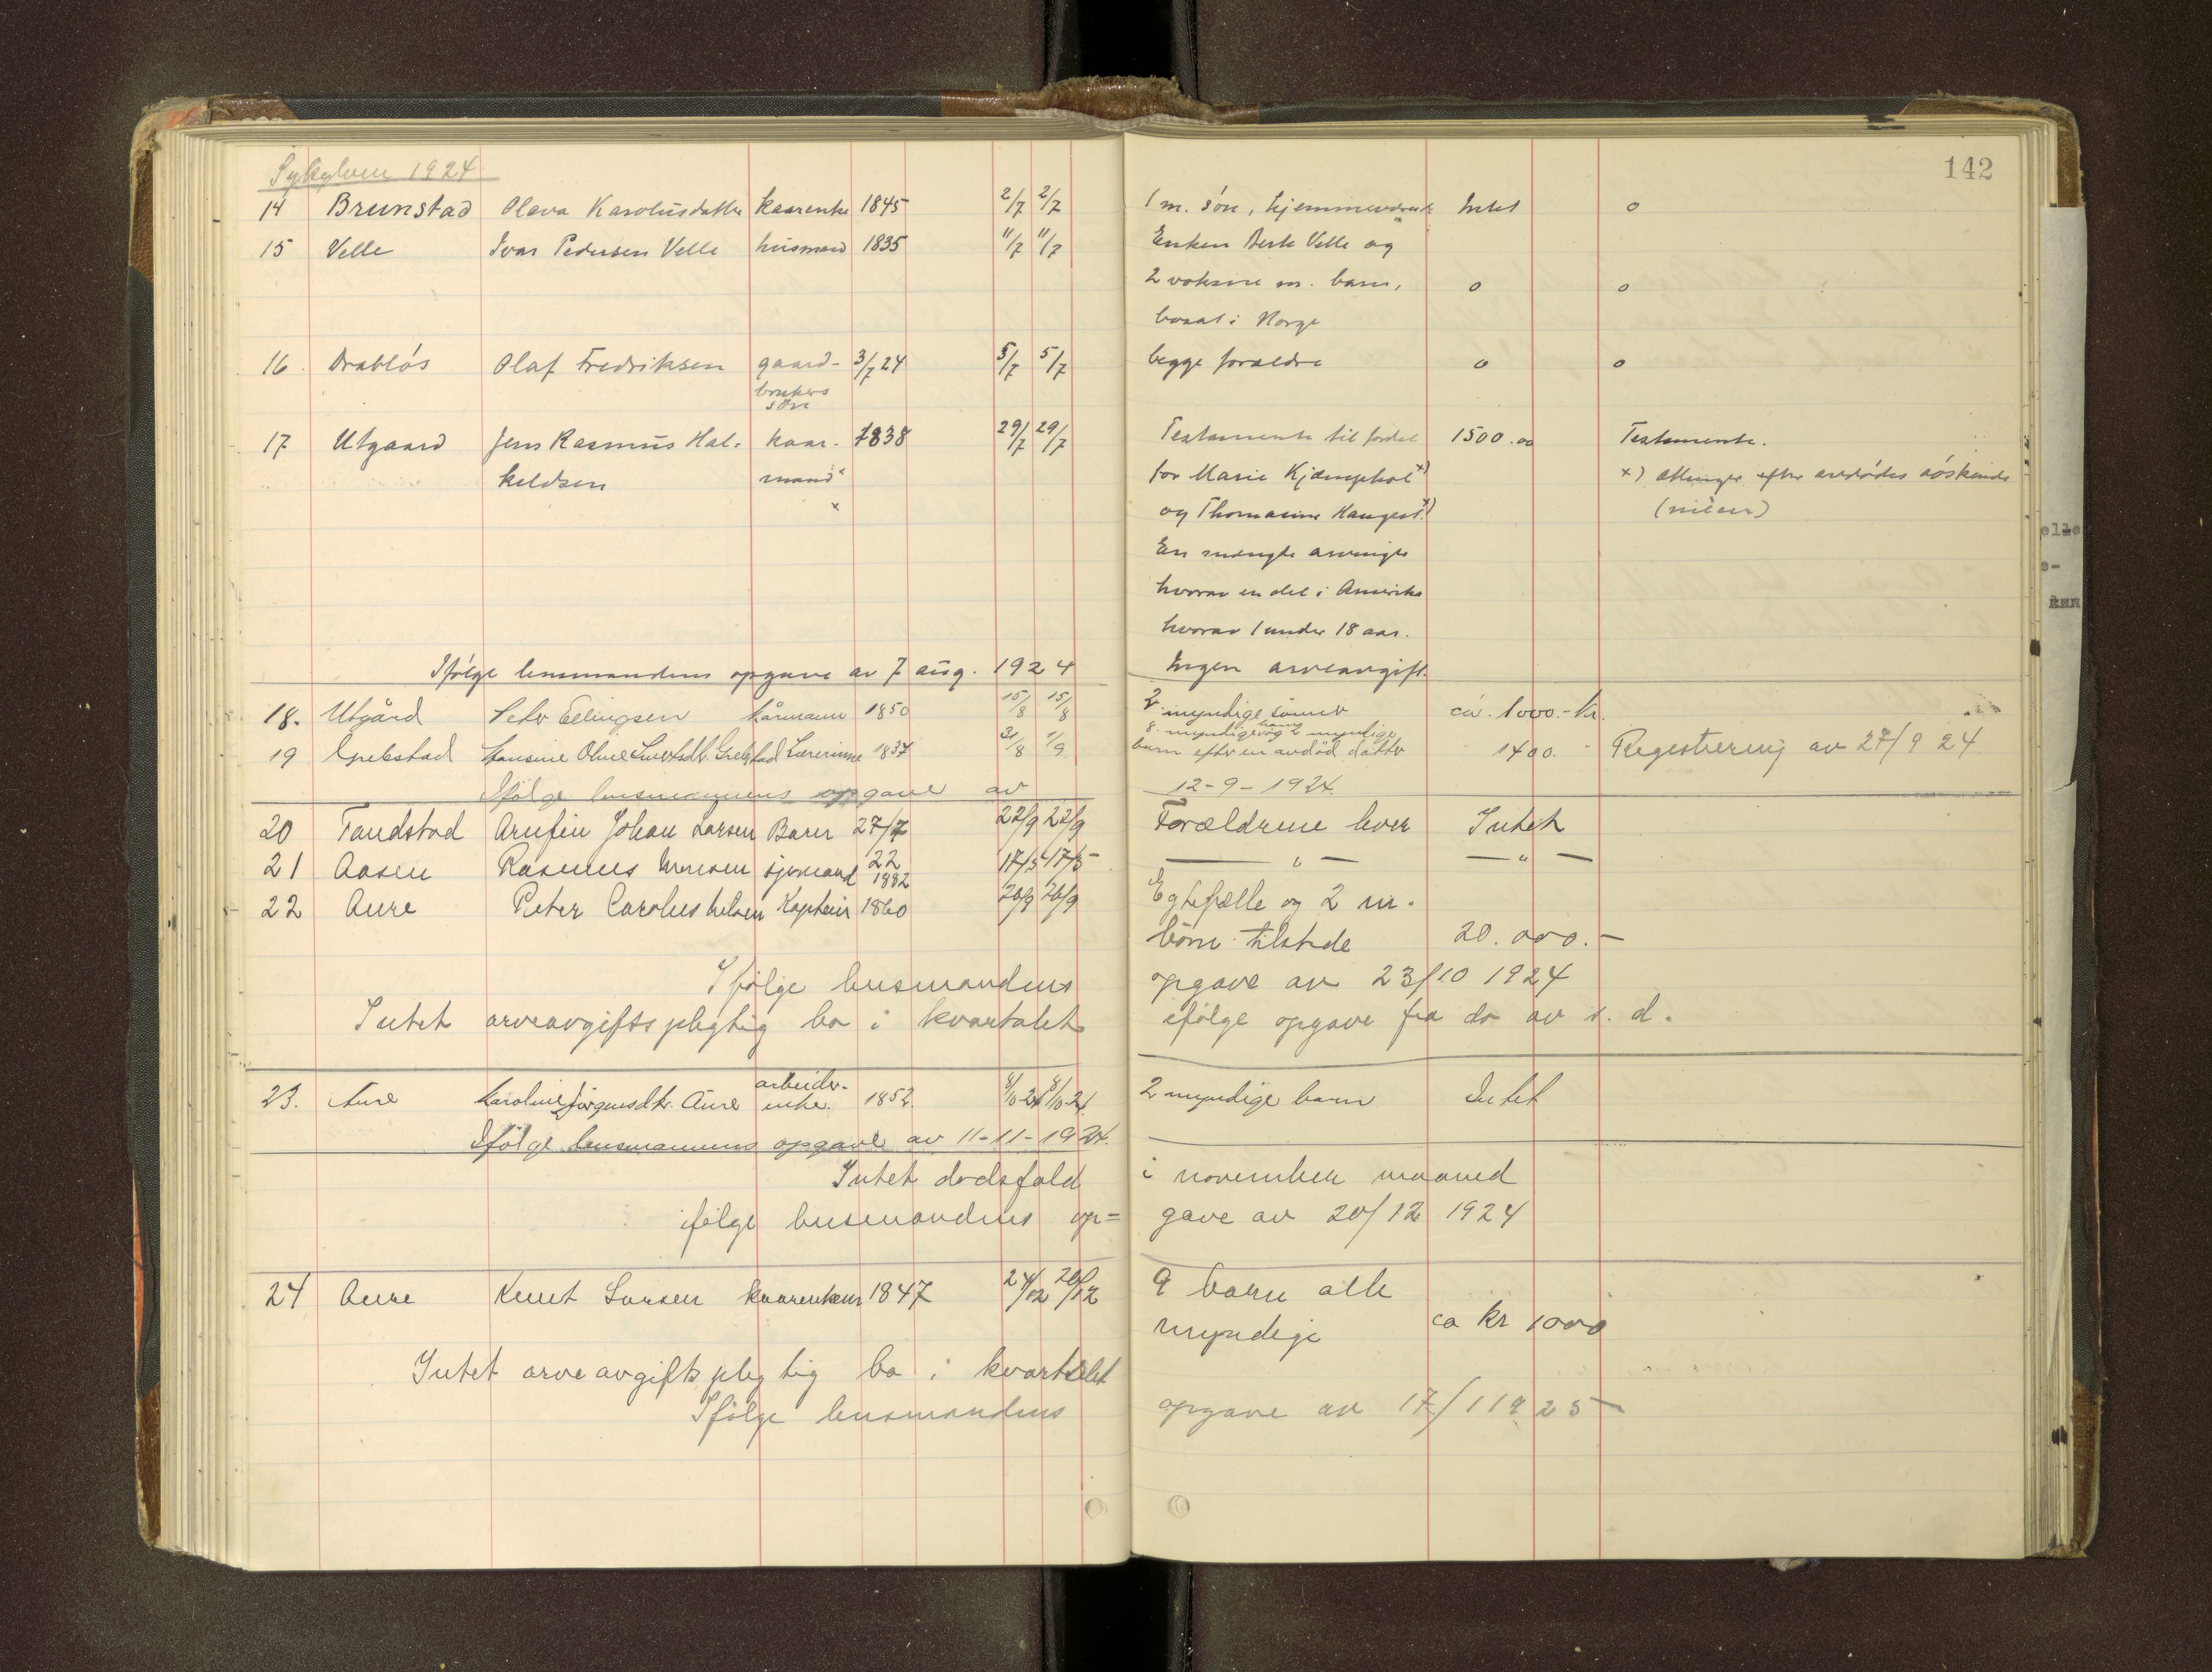 142
Sykylven 1924
14 Brunstad Olava Karolusdatter kaarenke 1845 2/7 2/7 1 m. søn, hjemmeværende Intet o
15 Velle Ivar Pedersen Velle husmand 1835 11/7 11/7 Enken Berte Velle og
2 voksne m. barn, o o
bosat i Norge
16 Drabløs Olaf Fredriksen gaard- 3/7 24 5/7 5/7 begge forældre o o
brukers
søn
17 Utgaard Jens Rasmus Hal- kaar- 1838 29/7 29/7 Testamente til fordel 1500.00 Testamente.
keldsen mand for Marie Kjæmphol x) x) etterfølger efter avdødes søskende
x og Thomasine Haugest. x) (niecer)
En mængde arvinger
hvorav en del i Amerika
hvorav 1 under 18 aar.
Ifølge lensmandens opgave av 7 aug. 1924 Ingen arveavgift.
18. Utgård Peter Ellingsen kårmann 1850 15/8 15/8 2 myndige sönner ca. 1000.- kr.
19 Grebstad Hansine Oline Sivertsdtr. Grebstad Lærerinne 1837 31/8 1/9 8 myndige barn og 2 myndige
barn efter en avdød datter 1400. " Registrering av 27/9 24
Ifølge lensmannens opgave av 12-9-1924.
20 Tandstad Arnfin Johan Larsen Barn 27/7 22/9 22/9 Forældrene lever Intet
22
21 Aasen Rasmus Monsen sjømand 1882 17/5 17/5 — " — — " —
22 Aure Peter Carolus Nilsen Kaptein 1860 26/9 26/9 Egtefælle og 2 m.
börn tilstede 20.000.-
Ifølge lensmandens opgave av 23/10 1924
Intet arveavgiftspligtig bo i kvartalet ifølge opgave fra do av s. d.
23. Aure Karoline Jörgensdtr. Aure arbeider-
enke. 1852 8/10 24 8/10 24 2 myndige barn Intet
Ifölge lensmannens opgave av 11-11-1924.
Intet dødsfald i november maaned
ifølge lensmandens op= gave av 20/12 1924
24 Aure Knut Larsen kaarenkem 1847 24/12 26/12 9 barn alle
myndige ca kr 1000
Intet arveavgiftspligtig bo i kvartalet
Ifølge lensmandens opgave av 17/1 1925
elle
e-